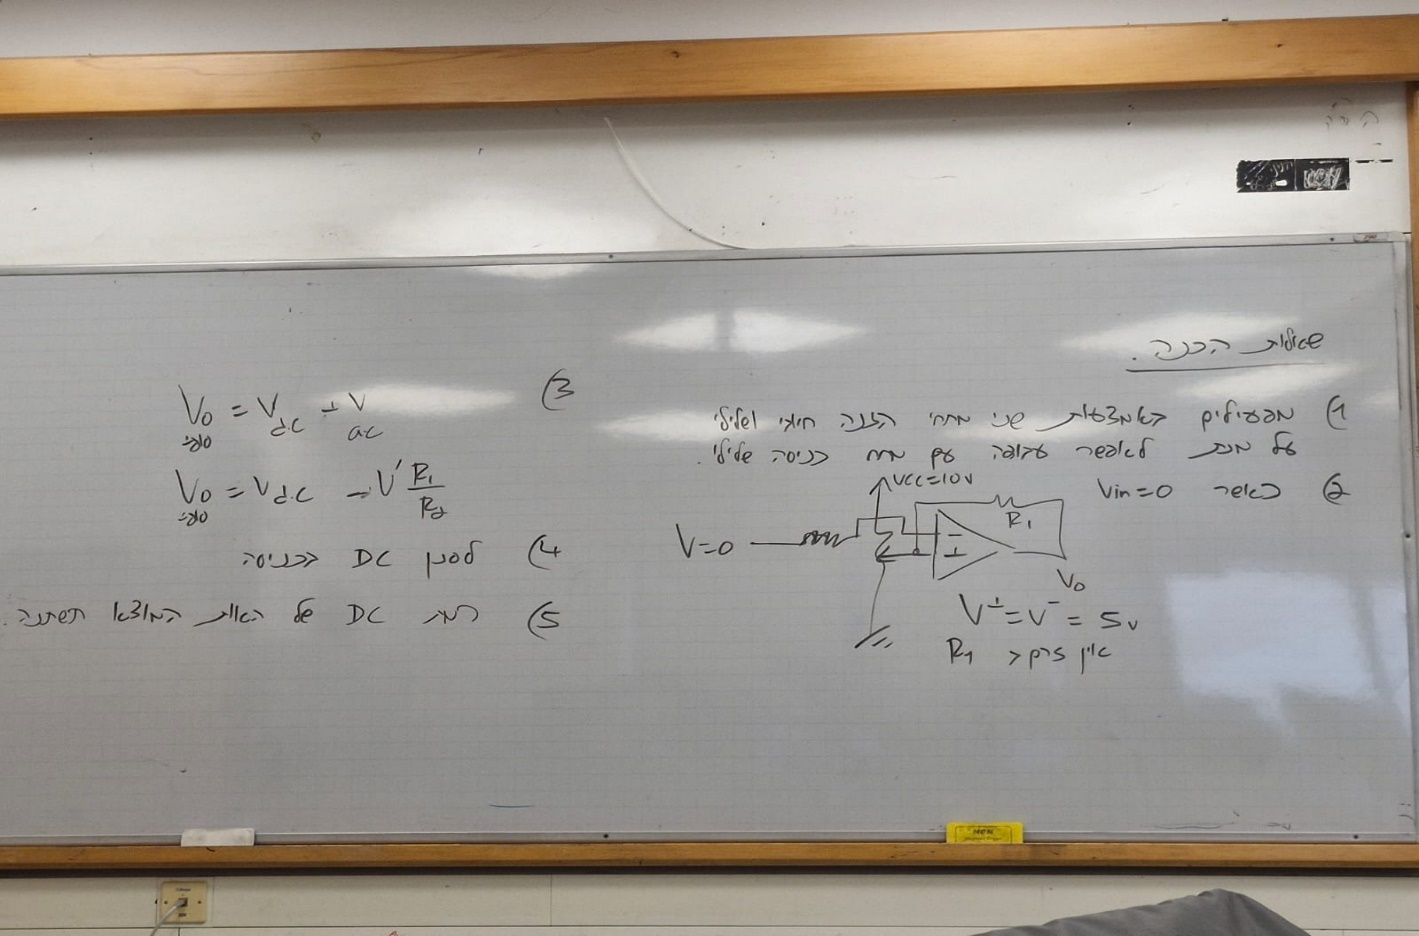 שאלות הכנה.
1) מפעילים באמצעות שני מתחי הזנה חיובי ושלילי
על מנת לאפשר עבודה עם מתח כניסה שלילי.
2) כאשר Vin=0
Vcc=10V
R1
V=0
V0
V+=V-=5v
אין זרם > R1
3) V0 = Vdc + Vac
V0 = Vdc - V' R1/R2
4) לסנן DC בכניסה
5) רמת DC של האות המוצא תשתנה.